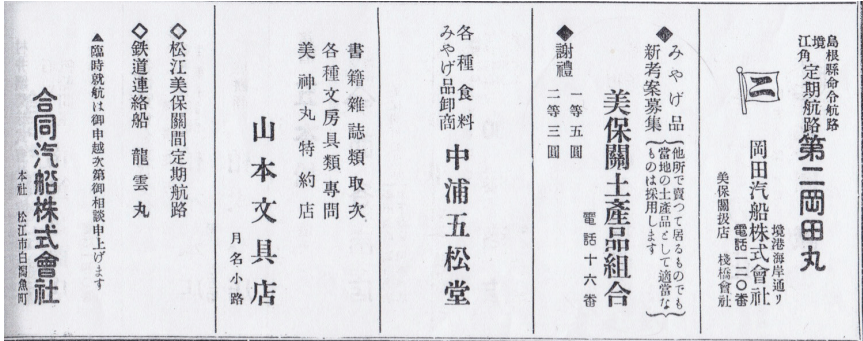 島根縣命令航路
境
江角
定期航路
第二岡田丸
二
岡田汽船株式會社
境港海岸通リ
電話一二〇番
美保關扱店 棧橋會社
◆みやげ品
新考案募集
他所で賣つて居るものでも
當地の土產品として適當な
ものは採用します
美保關土產品組合
電話十六番
◆謝禮
一等五圓
二等三圓
各種食料
みやげ品卸商
中浦五松堂
書籍雜誌類取次
各種文房具類專問
美神丸特約店
山本文具店
月名小路
◇松江美保關間定期航路
◇鉄道連絡船 龍雲丸
▲臨時就航は御申越次第御相談申上げます
合同汽船株式會社
本社 松江市白潟魚町